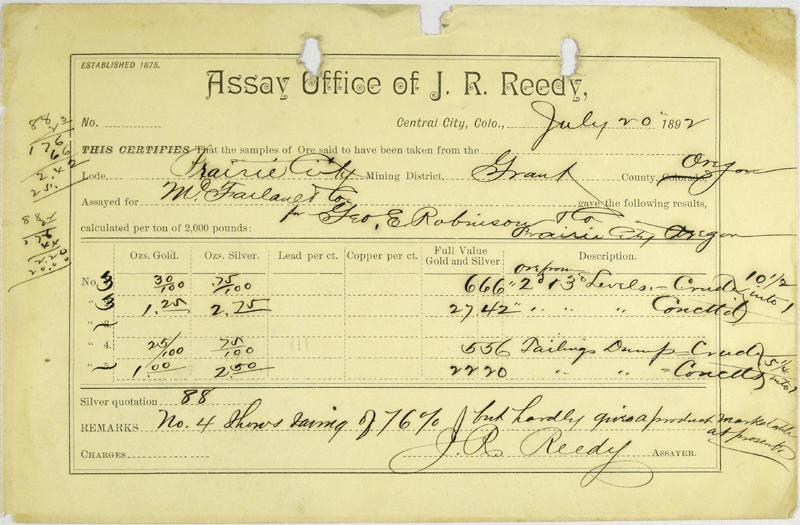 ESTABLISHED 1875.
Assay Office of J. R. Reedy,
No. Central City, Colo., July 20 1892
THIS CERTIFIES That the samples of Ore said to have been taken from the
Lode, Prairie City Mining District, Grant County, Colorado. Oregon
Assayed for McFarland & Co gave the following results,
for Geo, E Robinson & Co
calculated per ton of 2,000 pounds: Prairie City Oregon
Ozs. Gold. Ozs. Silver. Lead per ct. Copper per ct. Full Value Gold and Silver Description.
ore from
No. 3 30/100 .75/100 666 " 2d & 3d Levels. - Crude 10 1/2 into 1
" 3 1.25 2.75 27.42 " " " Conctd
" 3.
" 4. 25/100 75/100 556 Tailings Dump = Crude 5 1/4 into 1
" 5. 1.00 2.50 2220 " " = Conctd
Silver quotation 88
REMARKS No. 4 Shows saving of 76% but hardly gives a product marketable at present.
CHARGES J. R. Reedy ASSAYER.